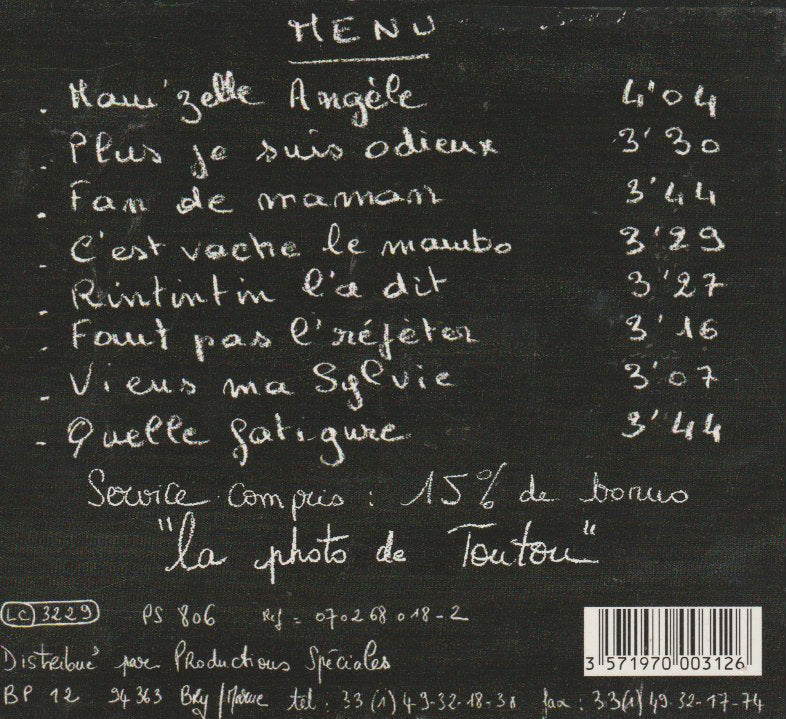 MENU
. Mam'zelle Angèle 4'04
. Plus je suis odieux 3'30
. Fan de maman 3'44
- C'est vache le mambo 3'29
- Rintintin l'a dit 3'27
- Faut pas l'réfèter 3'16
- Viens ma Sylvie 3'07
- Quelle fatigure 3'44
Service compris : 15% de bonus
"la photo de Toutou"
LC 3229 PS 806 Ref = 070268018-2
Distribué par Productions Spéciales
BP 12 94363 Bry/Marne tel : 33(1)49-32-18-38 fax : 33(1)49-32-17-74
3 571970 003126